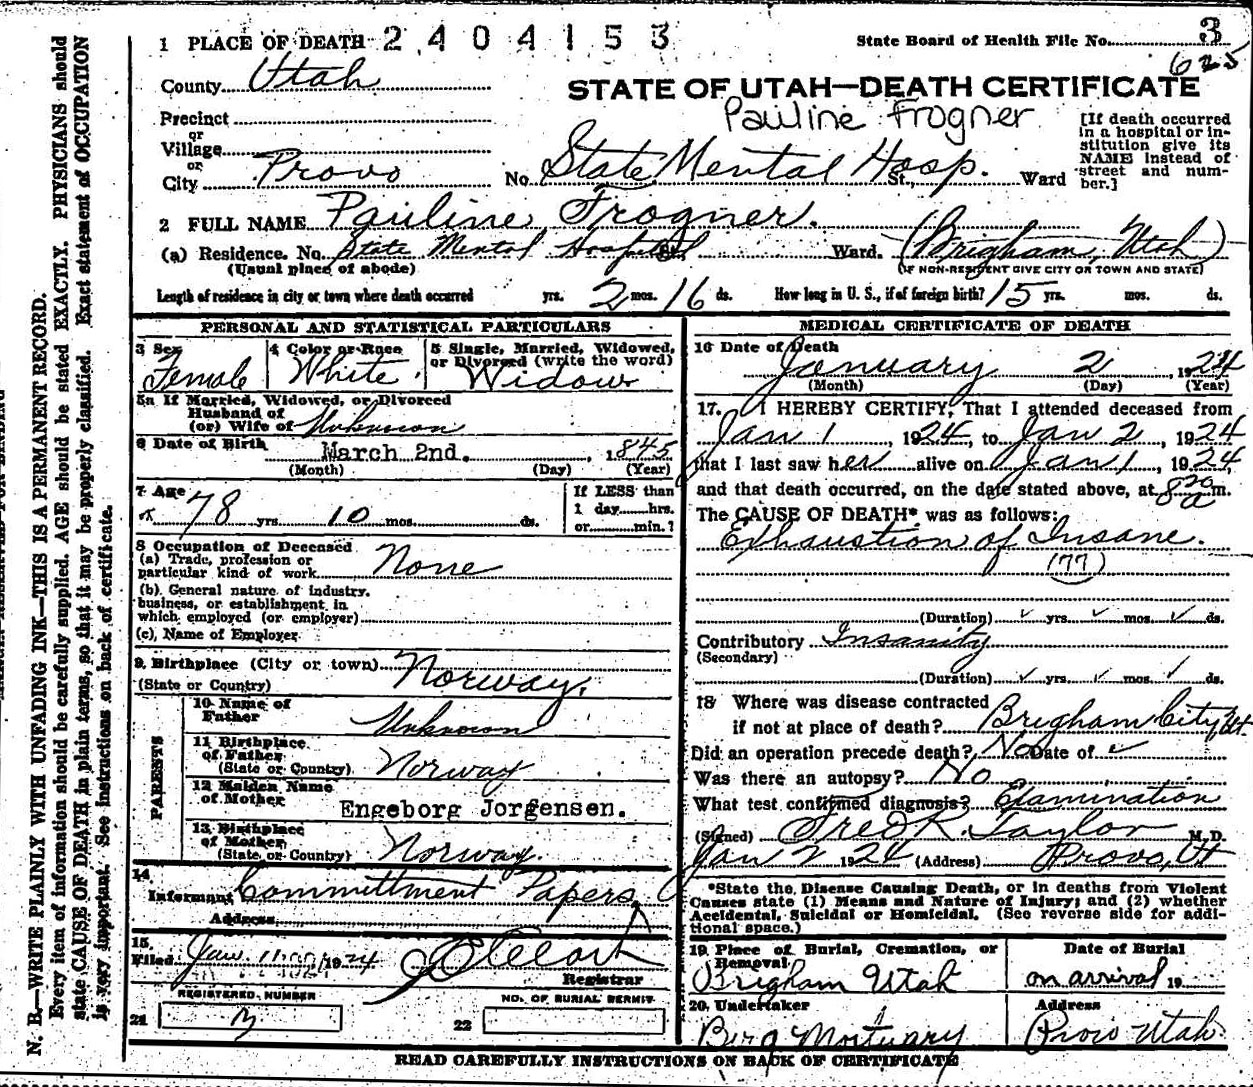 1 PLACE OF DEATH 2404153
State Board of Health File No. 3
625
County Utah
STATE OF UTAH—DEATH CERTIFICATE
Pauline Frogner
Precinct
or
Village
or
City Provo
No. State Mental Hosp. St., Ward
[If death occurred
in a hospital or in-
stitution give its
NAME instead of
street and num-
ber.]
2 FULL NAME Pauline Frogner.
(a) Residence. No. State Mental Hospital St. Ward. (Brigham, Utah)
(Usual place of abode)
(IF NON-RESIDENT GIVE CITY OR TOWN AND STATE)
Length of residence in city or town where death occurred yrs. 2 mos. 16 ds. How long in U. S., if of foreign birth? 15 yrs. mos. ds.
PERSONAL AND STATISTICAL PARTICULARS
3 Sex
Female
4 Color or Race
White.
5 Single, Married, Widowed,
or Divorced (write the word)
Widow
5a If Married, Widowed, or Divorced
Husband of
(or) Wife of Unknown
6 Date of Birth March 2nd. , 1845
(Month) (Day) (Year)
7 Age
78 yrs. 10 mos. ds.
If LESS than
1 day hrs.
or min.?
8 Occupation of Deceased
(a) Trade, profession or
particular kind of work None
(b) General nature of industry,
business, or establishment in
which employed (or employer)
(c) Name of Employer
9. Birthplace (City or town) Norway.
(State or Country)
PARENTS
10 Name of
Father Unknown
11 Birthplace
of Father
(State or Country) Norway
12 Maiden Name
of Mother Engeborg Jorgensen.
13 Birthplace
of Mother
(State or Country) Norway.
14
Informant Committment Papers
Address
15.
Filed Jan. 11 1924
Registrar
REGISTERED NUMBER
21 3
NO. OF BURIAL PERMIT
22
MEDICAL CERTIFICATE OF DEATH
16 Date of Death
January 2 , 1924
(Month) (Day) (Year)
17. I HEREBY CERTIFY, That I attended deceased from
Jan 1 , 1924, to Jan 2 , 1924
that I last saw her alive on Jan 1 , 1924,
and that death occurred, on the date stated above, at 8 20 a m.
The CAUSE OF DEATH* was as follows:
Exhaustion of Insane.
(77)
(Duration) yrs. mos. ds.
Contributory Insanity
(Secondary)
(Duration) yrs. mos. ds.
18 Where was disease contracted
if not at place of death? Brigham City Ut.
Did an operation precede death? No Date of
Was there an autopsy? No
What test confirmed diagnosis? Examination
(Signed) Fred R. Taylor M.D.
Jan 2 1924 (Address) Provo, Ut
*State the Disease Causing Death, or in deaths from Violent
Causes state (1) Means and Nature of Injury; and (2) whether
Accidental, Suicidal or Homicidal. (See reverse side for addi-
tional space.)
19 Place of Burial, Cremation, or
Removal
Brigham Utah
Date of Burial
on arrival 19
20. Undertaker
Berg Mortuary
Address
Provo Utah.
READ CAREFULLY INSTRUCTIONS ON BACK OF CERTIFICATE
N. B.—WRITE PLAINLY WITH UNFADING INK—THIS IS A PERMANENT RECORD.
Every item of information should be carefully supplied. AGE should be stated EXACTLY. PHYSICIANS should
state CAUSE OF DEATH in plain terms, so that it may be properly classified. Exact statement of OCCUPATION
is very important. See instructions on back of certificate.